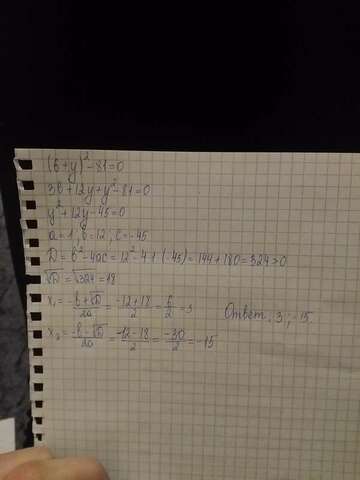 (6+y)²-81=0
36+12y+y²-81=0
y²+12y-45=0
a=1, b=12, c=-45
D=b²-4ac=12²-4·1·(-45)=144+180=324>0
√D=√324=18
x₁=(-b+√D)/2a=(-12+18)/2=6/2=3 Ответ: 3; -15.
x₂=(-b-√D)/2a=(-12-18)/2=-30/2=-15